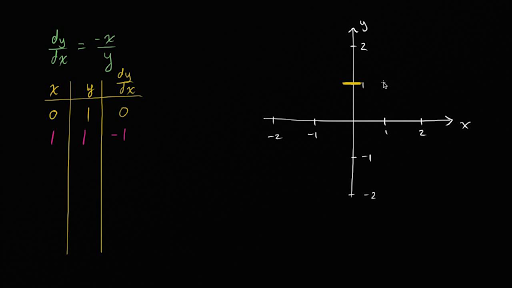 dy/dx = -x/y
x y dy/dx
0 1 0
1 1 -1
y
2
1
-2 -1 1 2 x
-1
-2